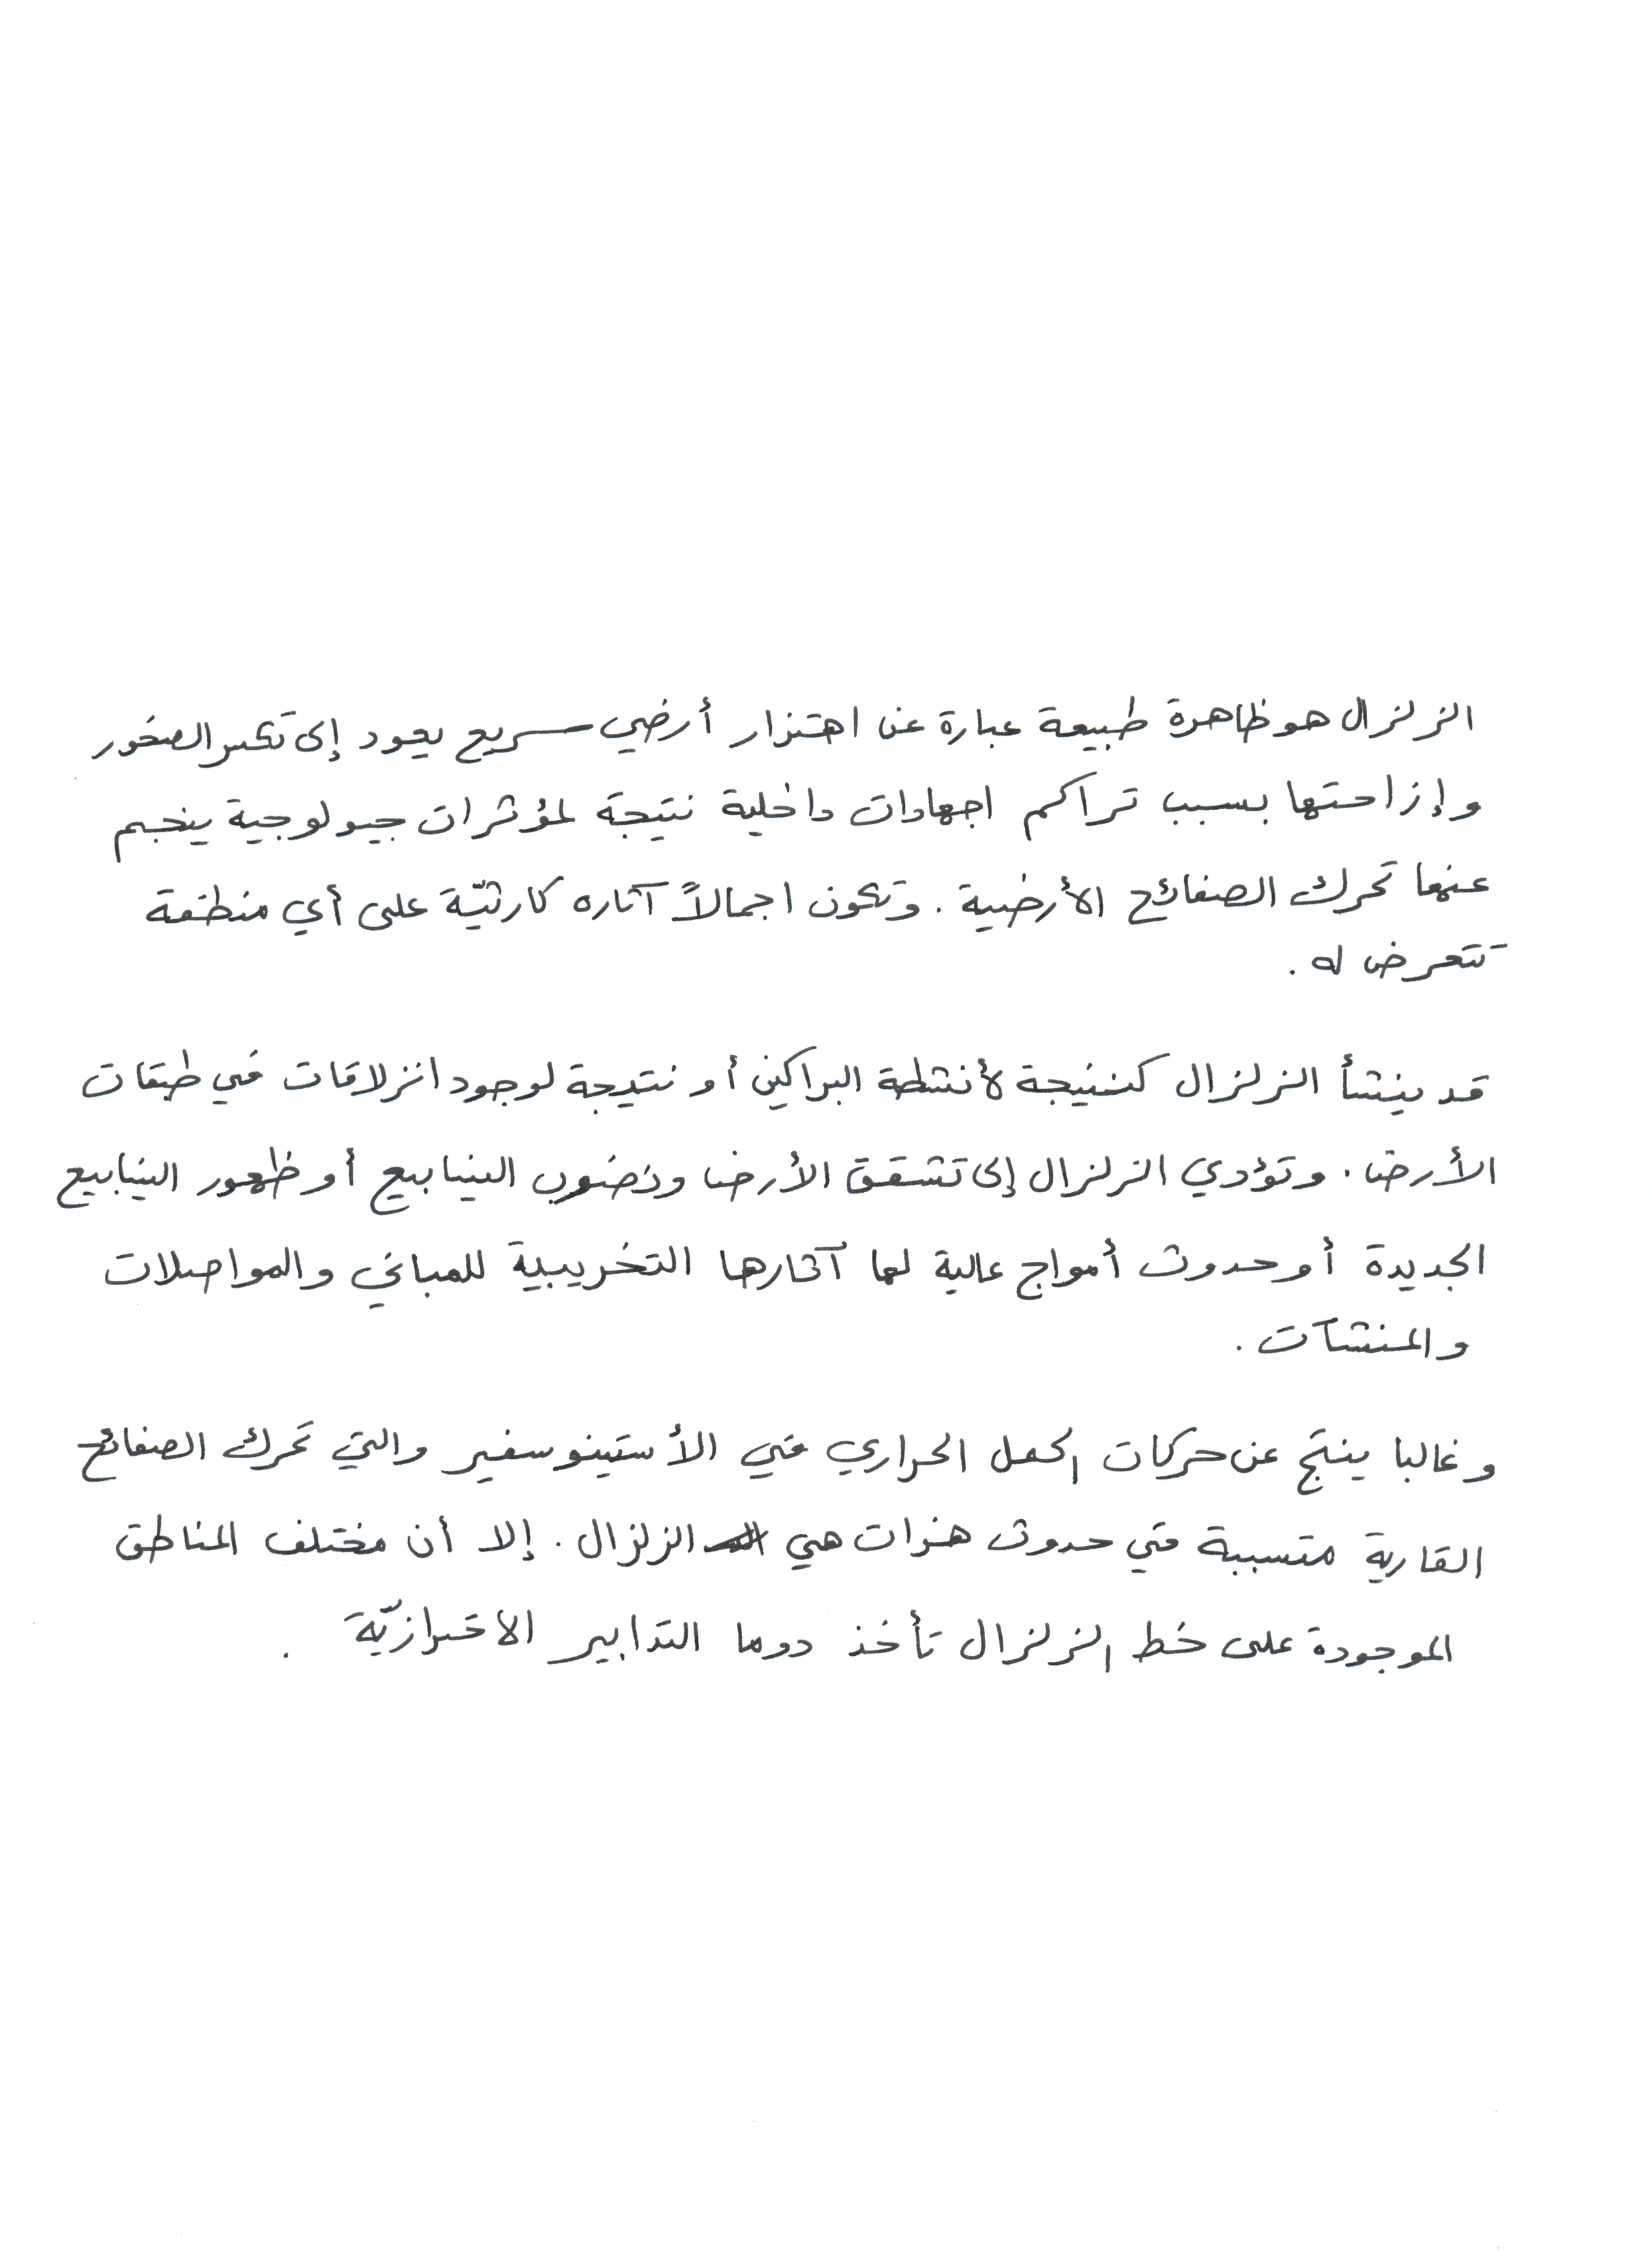 الزلزال هو ظاهرة طبيعة عبارة عن اهتزار أرضي سريع يعود إلى تكسر الصخور
وإزاحتها بسبب تراكم اجهادات داخلية نتيجة لمؤثرات جيولوجية ينجم
عنها تحرك الصفائح الأرضية. وتكون اجمالاً آثاره كارثيّة على أي منطقة
تتعرض له.
قد ينشأ الزلزال كنتيجة لأنشطة البراكين أو نتيجة لوجود انزلاقات في طبقات
الأرض. وتؤدي الزلزال إلى تشقق الأرض ونضوب الينابيع أو ظهور الينابيع
الجديدة أو حدوث أمواج عالية لها آثارها التخريبية للمباني والمواصلات
والمنشآت.
وغالبا ينتج عن حركات الحمل الحراري في الأستينوسفير والتي تحرك الصفائح
القارية متسببة في حدوث هزات هي الزلزال. إلا أن مختلف المناطق
الموجودة على خط الزلزال تأخذ دوما التدابير الاحترازيّة.